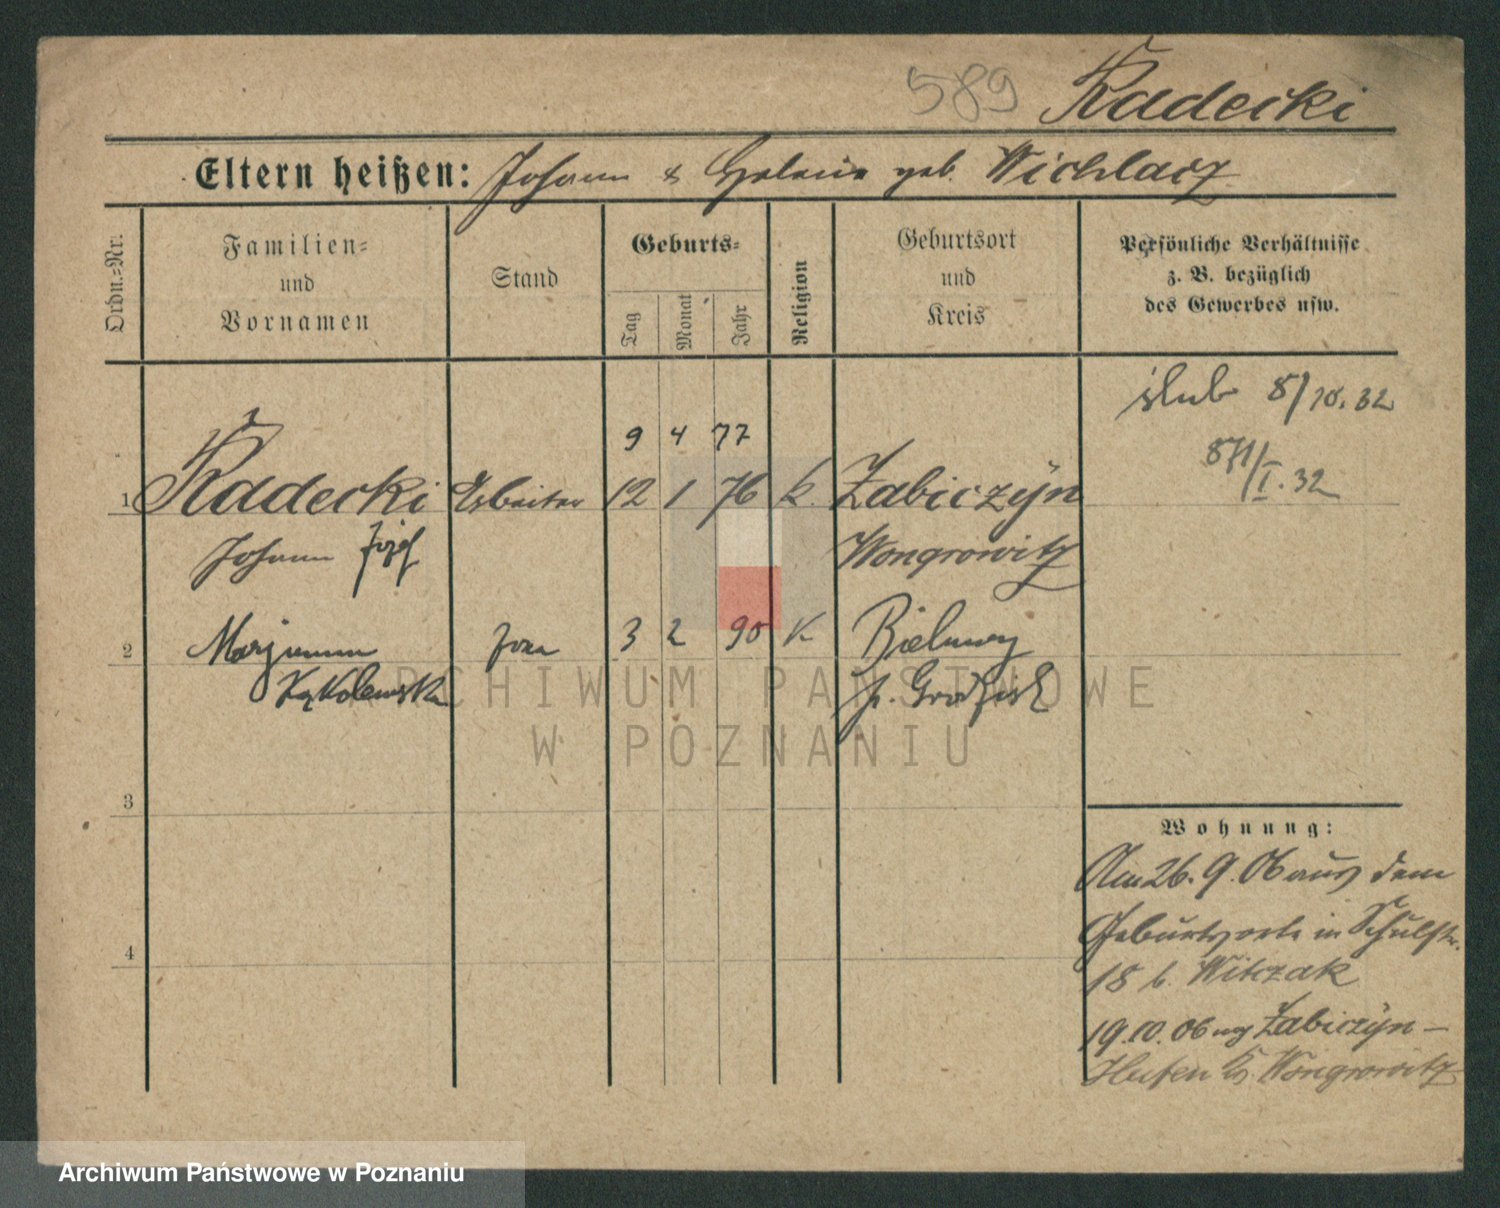 589 Radecki
Eltern heißen: Johann & Helene geb. Wichlacz
Ordn.=Nr.
Familien=
und
Vornamen
Stand
Geburts=
Tag
Monat
Jahr
Religion
Geburtsort
und
Kreis
Persönliche Verhältnisse
z. B. bezüglich
des Gewerbes usw.
ślub 8/10. 32
871/I. 32
9 4 77
1 Radecki Arbeiter 12 1 76 k. Zabiczyn
Johann Józef Wongrowitz
2 Marjanna żona 3 2 90 k
Kąkolewska p. Grodzisk
3
4
Wohnung:
Am 26. 9. 06 aus dem
Geburtsorte in Schulstr.
18 b. Witczak
19.10.06 nach Zabiczyn-
Hufen Kr. Wongrowitz
ARCHIWUM PAŃSTWOWE
W POZNANIU
Archiwum Państwowe w Poznaniu